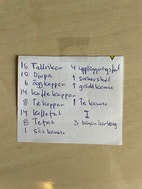 16 Tallrikar
10 Djupa
6 äggkoppar
14 kaffekoppar
8 Tekoppar
14 kaffefat
8 Tefat
1 såskanna
4 uppläggningsfat
1 sockerskål
1 gräddkanna
1 Tekanna
I
3